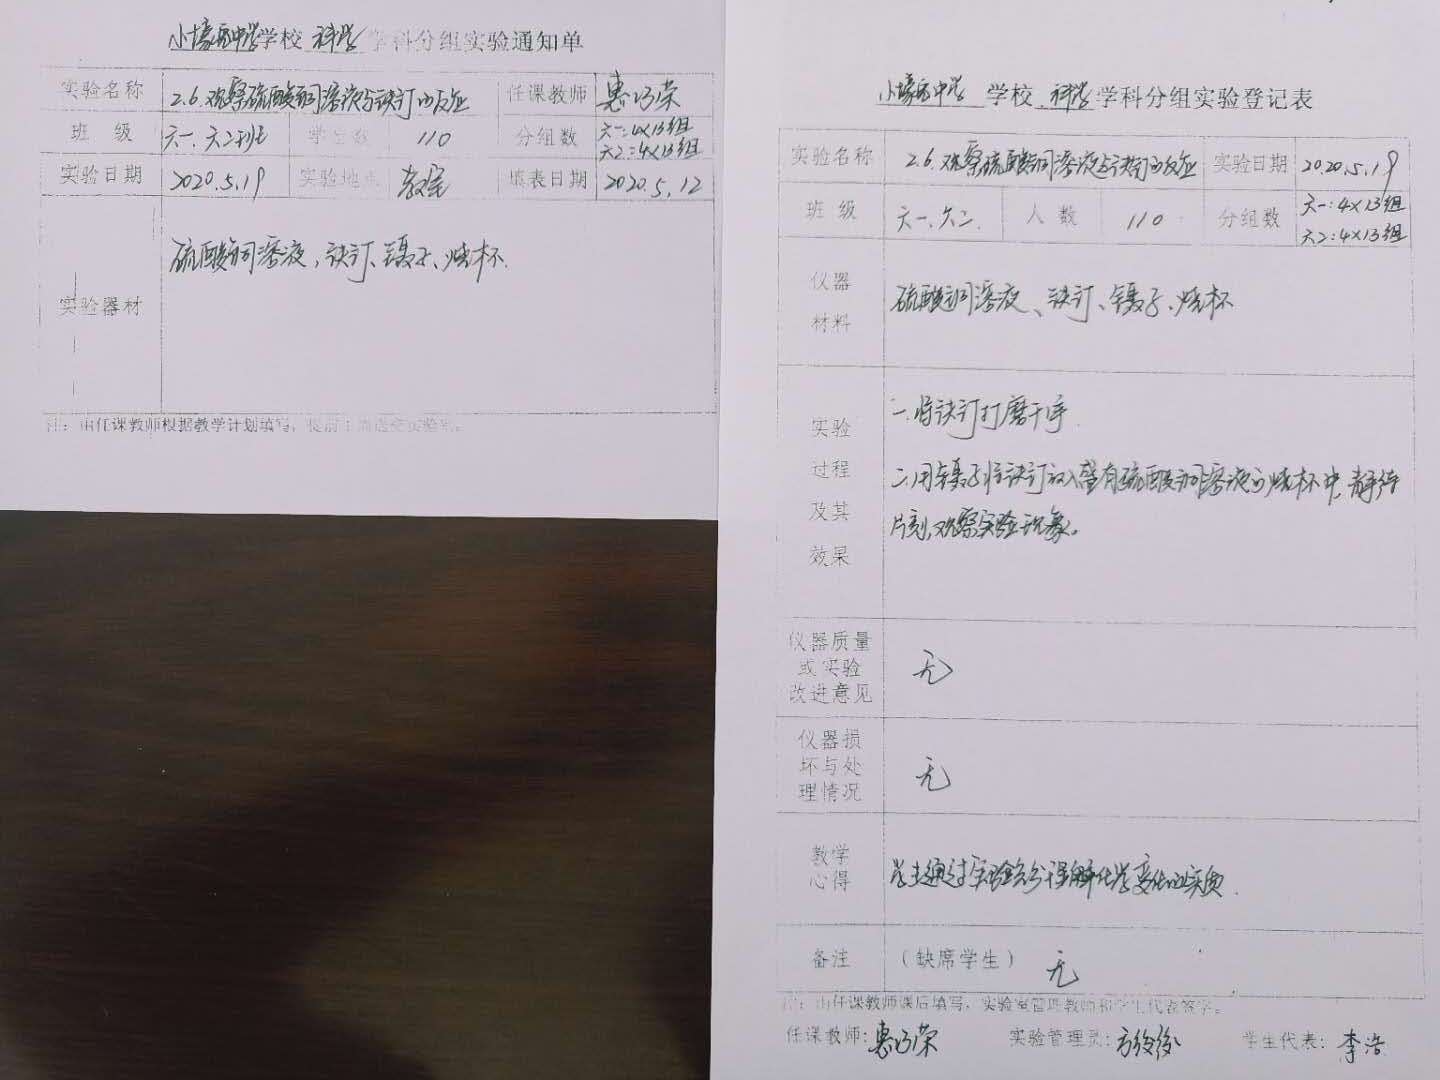 小壕兔中学学校 科学 学科分组实验通知单
实验名称 2.6.观察硫酸铜溶液与铁钉的反应 任课教师 惠巧荣
班 级 六一、六二班 学生数 110 分组数 六一:4×13组 六2:4×13组
实验日期 2020.5.19 实验地点 教室 填表日期 2020.5.12
实验器材 硫酸铜溶液、铁钉、镊子、烧杯.
注:由任课教师根据教学计划填写,
小壕兔中学 学校 科学 学科分组实验登记表
实验名称 2.6.观察硫酸铜溶液与铁钉的反应 实验日期 2020.5.19
班 级 六一、六二. 人 数 110 分组数 六一:4×13组 六2:4×13组
仪器
材料
硫酸铜溶液、铁钉、镊子、烧杯
实验
过程
及其
效果
一.将铁钉打磨干净
二.用镊子将铁钉放入盛有硫酸铜溶液的烧杯中,静待
片刻,观察实验现象。
仪器质量
或实验
改进意见
无
仪器损
坏与处
理情况
无
教学
心得
学生通过实验充分理解化学变化的实质.
备注 (缺席学生) 无
注:由任课教师课后填写,实验室管理教师和学生代表签字。
任课教师:惠巧荣 实验管理员: 学生代表:李浩